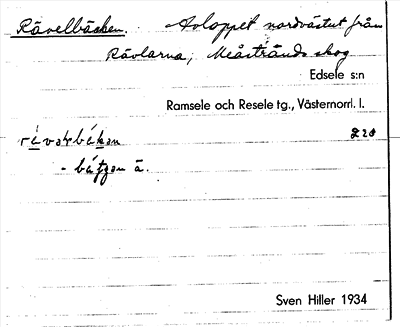 Rävelbäcken. Avloppet nordvästut från
Rävlarna, Meåstrands skog
Edsele s:n
Ramsele och Resele tg., Västernorrl. l.
Z 28
ä.
Sven Hiller 1934